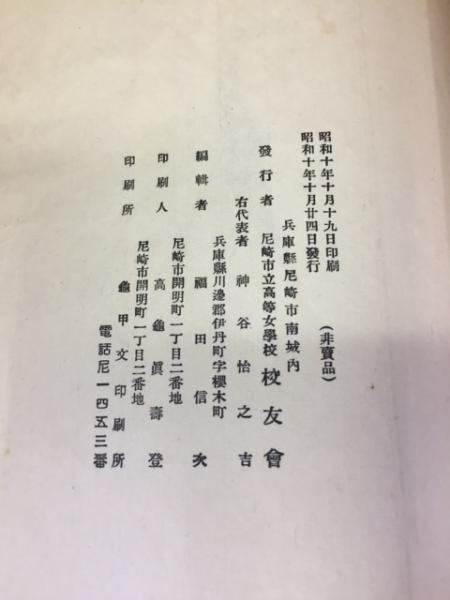 昭和十年十月十九日印刷
昭和十年十月廿四日發行
(非賣品)
兵庫縣尼崎市南城內
發行者 尼崎市立高等女學校 校友會
右代表者 神谷怡之吉
兵庫縣川邊郡伊丹町字櫻木町
編輯者 福田信次
尼崎市開明町一丁目二番地
印刷人 高龜眞壽登
尼崎市開明町一丁目二番地
印刷所 龜甲文印刷所
電話尼一四五三番